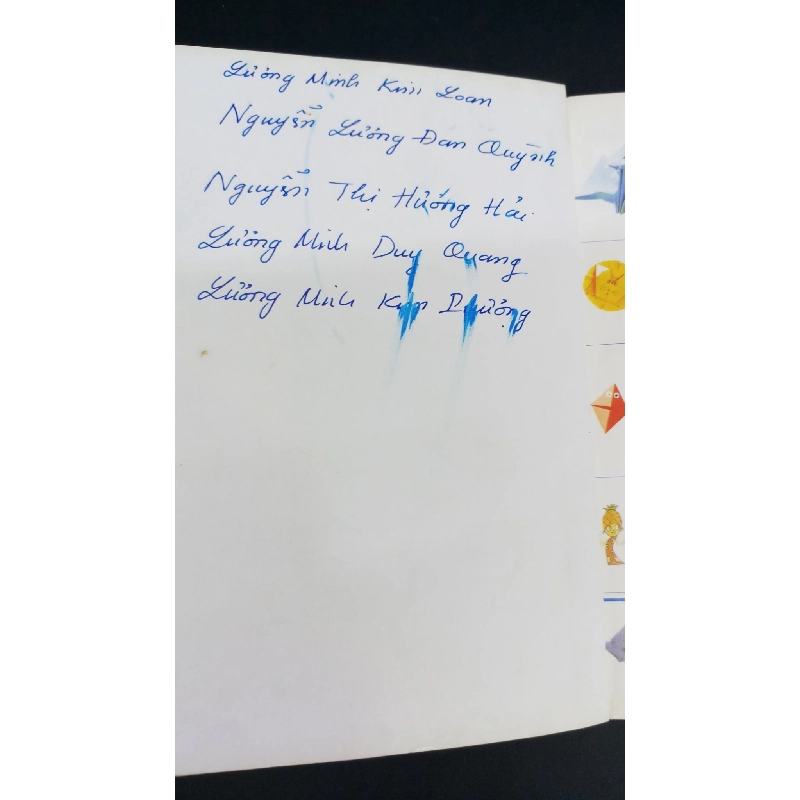 Lương Minh Kim Loan
Nguyễn Lương Đan Quỳnh
Nguyễn Thị Hướng Hải
Lương Minh Duy Quang
Lương Minh Kim Phượng